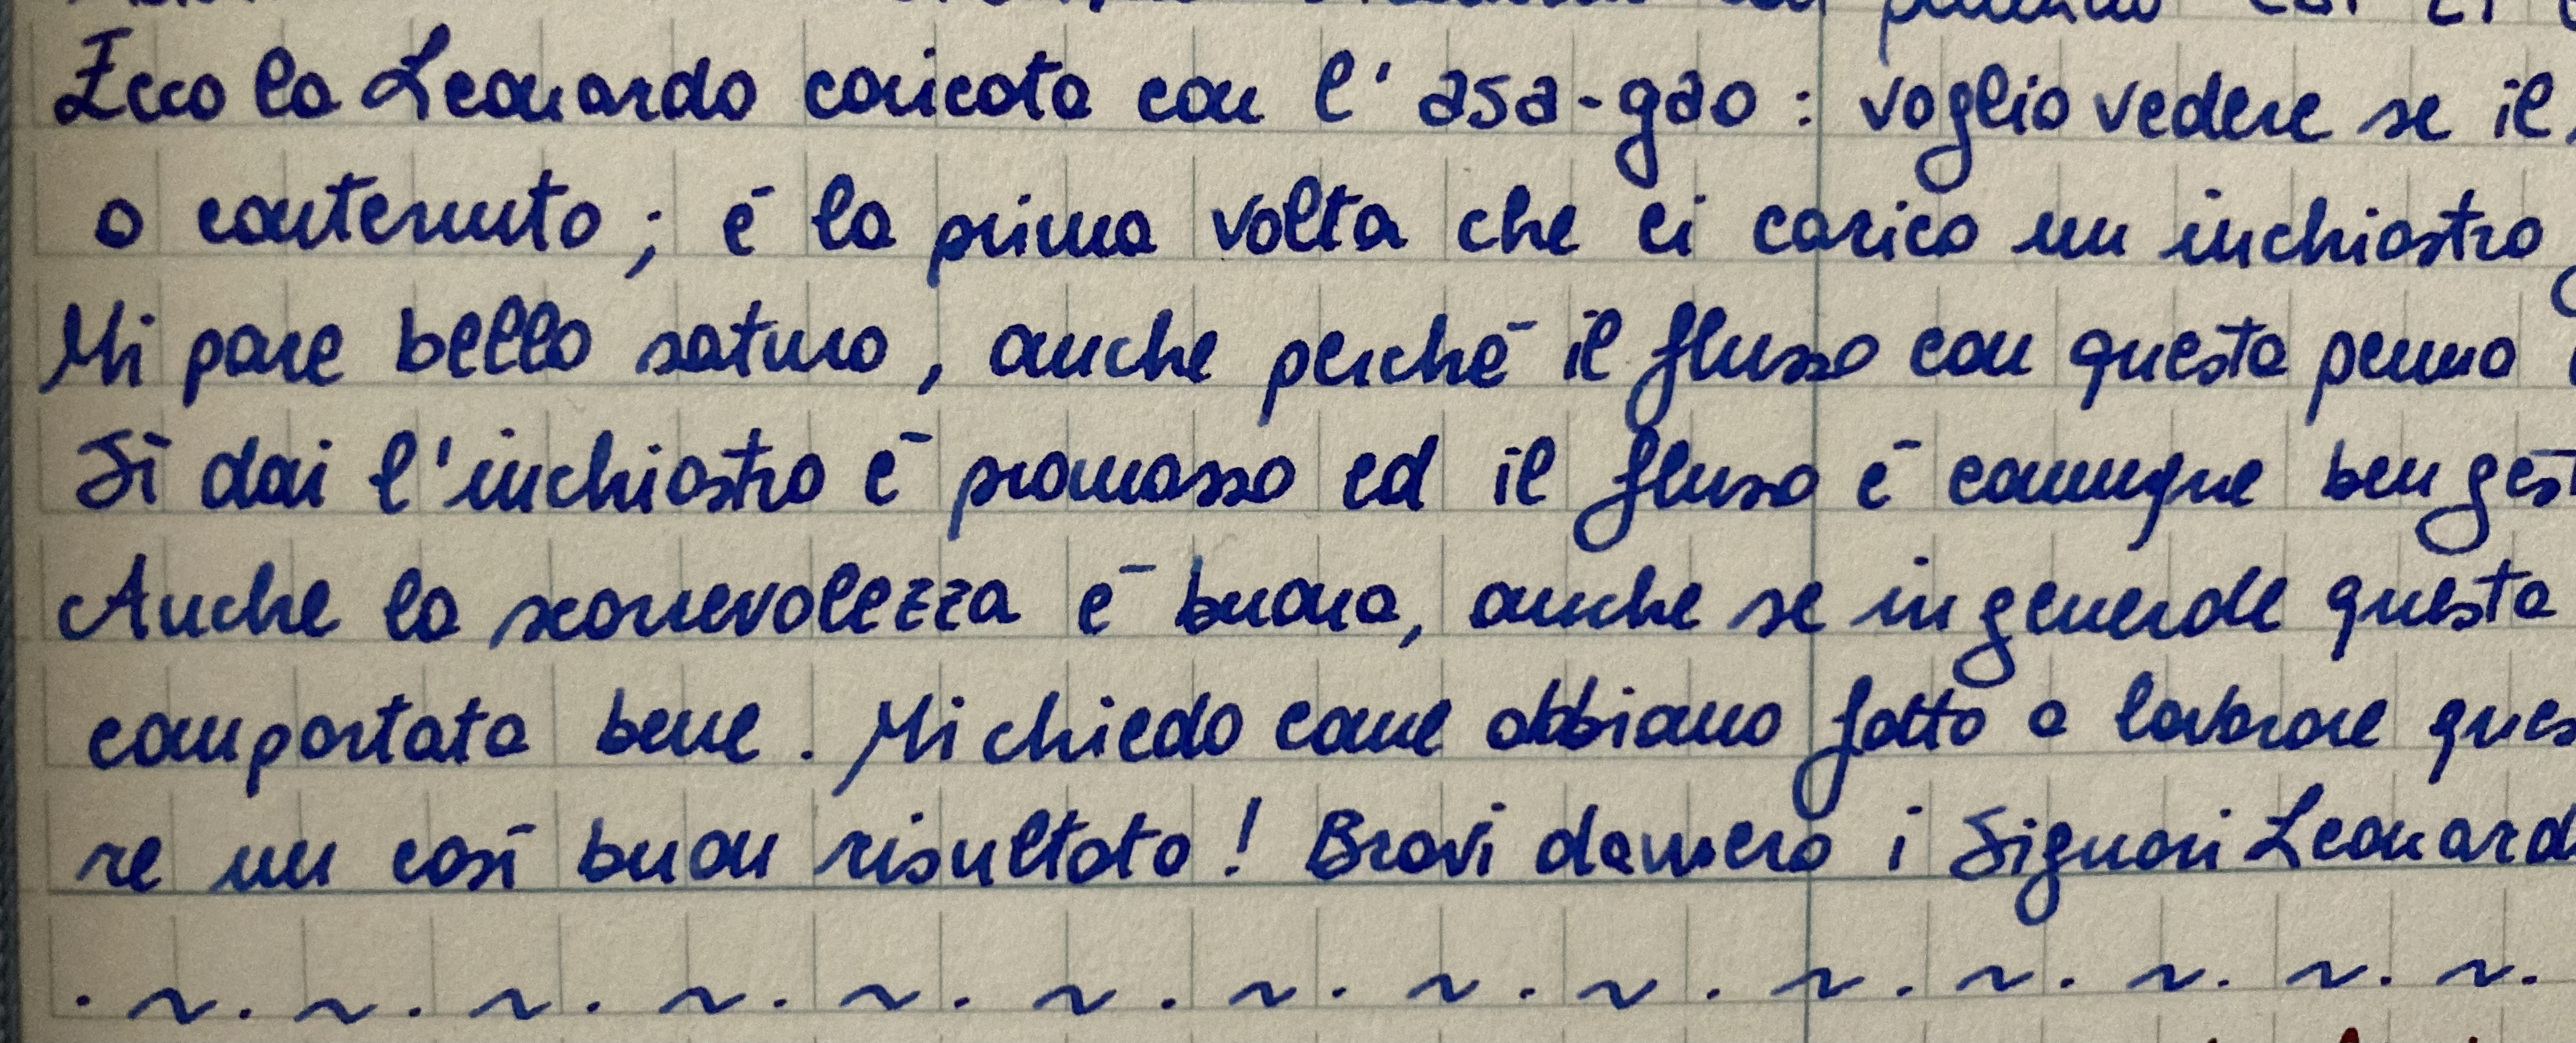 Ecco la Leonardo caricata con l'asa-gao: voglio vedere se il
o contenuto; è la prima volta che ci carico un inchiostro
Mi pare bello saturo, anche perché il flusso con questa penna
Sì dai l'inchiostro è promosso ed il flusso è comunque ben gest
Anche la scorrevolezza è buona, anche se in generale questa
comportata bene. Mi chiedo come abbiano fatto a lavorare ques
re un così buon risultato! Bravi davvero i Signori Leonard
. ~ . ~ . ~ . ~ . ~ . ~ . ~ . ~ . ~ . ~ . ~ . ~ . ~ . ~ .